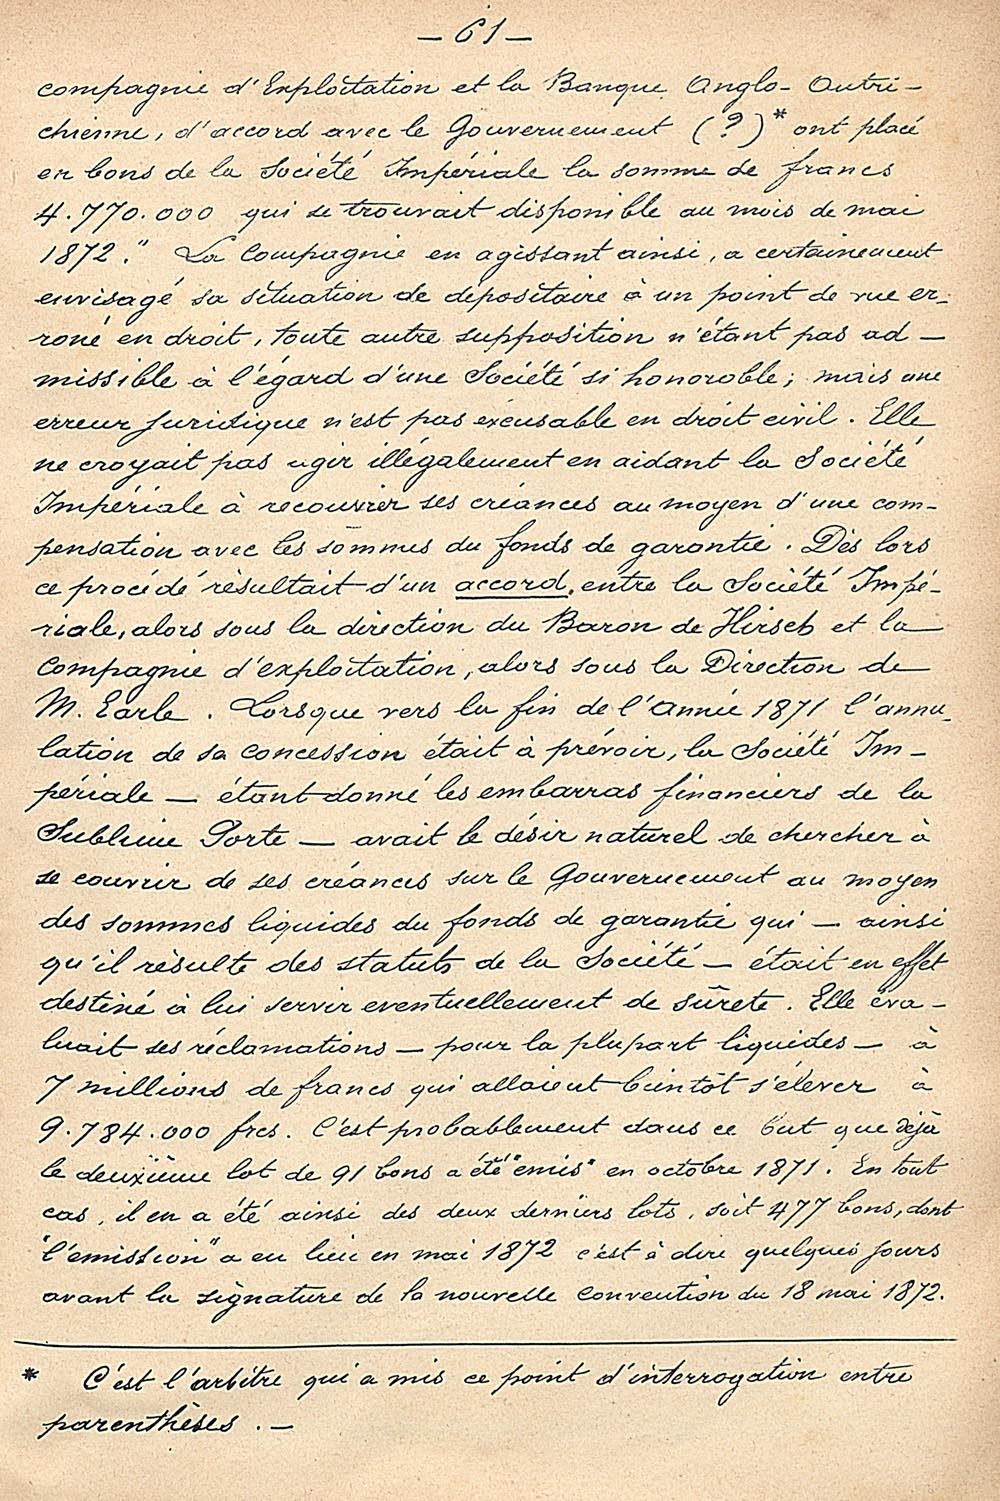 — 61 —
compagnie d'Exploitation et la Banque Anglo-Autri-
chienne, d'accord avec le Gouvernement (?)* ont placé
en bons de la Société Impériale la somme de francs
4.770.000 qui se trouvait disponible au mois de mai
1872." La Compagnie en agissant ainsi, a certainement
envisagé sa situation de dépositaire à un point de vue er-
roné en droit, toute autre supposition n'étant pas ad-
missible à l'égard d'une Société si honorable; mais une
erreur juridique n'est pas excusable en droit civil. Elle
ne croyait pas agir illégalement en aidant la Société
Impériale à recouvrer ses créances au moyen d'une com-
pensation avec les sommes du fonds de garantie. Dès lors
ce procédé résultait d'un accord, entre la Société Impé-
riale, alors sous la direction du Baron de Hirsch et la
Compagnie d'exploitation, alors sous la Direction de
M. Earle. Lorsque vers la fin de l'année 1871 l'annu-
lation de sa concession était à prévoir, la Société Im-
périale — étant donné les embarras financiers de la
Sublime Porte — avait le désir naturel de chercher à
se couvrir de ses créances sur le Gouvernement au moyen
des sommes liquides du fonds de garantie qui — ainsi
qu'il résulte des statuts de la Société — était en effet
destiné à lui servir eventuellement de sûrete. Elle éva-
luait ses réclamations — pour la plupart liquides — à
7 millions de francs qui allaient bientôt s'élever à
9.784.000 frcs. C'est probablement dans ce but que déjà
le deuxième lot de 91 bons a été "émis" en octobre 1871. En tout
cas, il en a été ainsi des deux derniers lots, soit 477 bons, dont
"l'émission" a eu lieu en mai 1872 c'est à dire quelques jours
avant la signature de la nouvelle Convention du 18 mai 1872.
* C'est l'arbitre qui a mis ce point d'interrogation entre
parenthèses. —